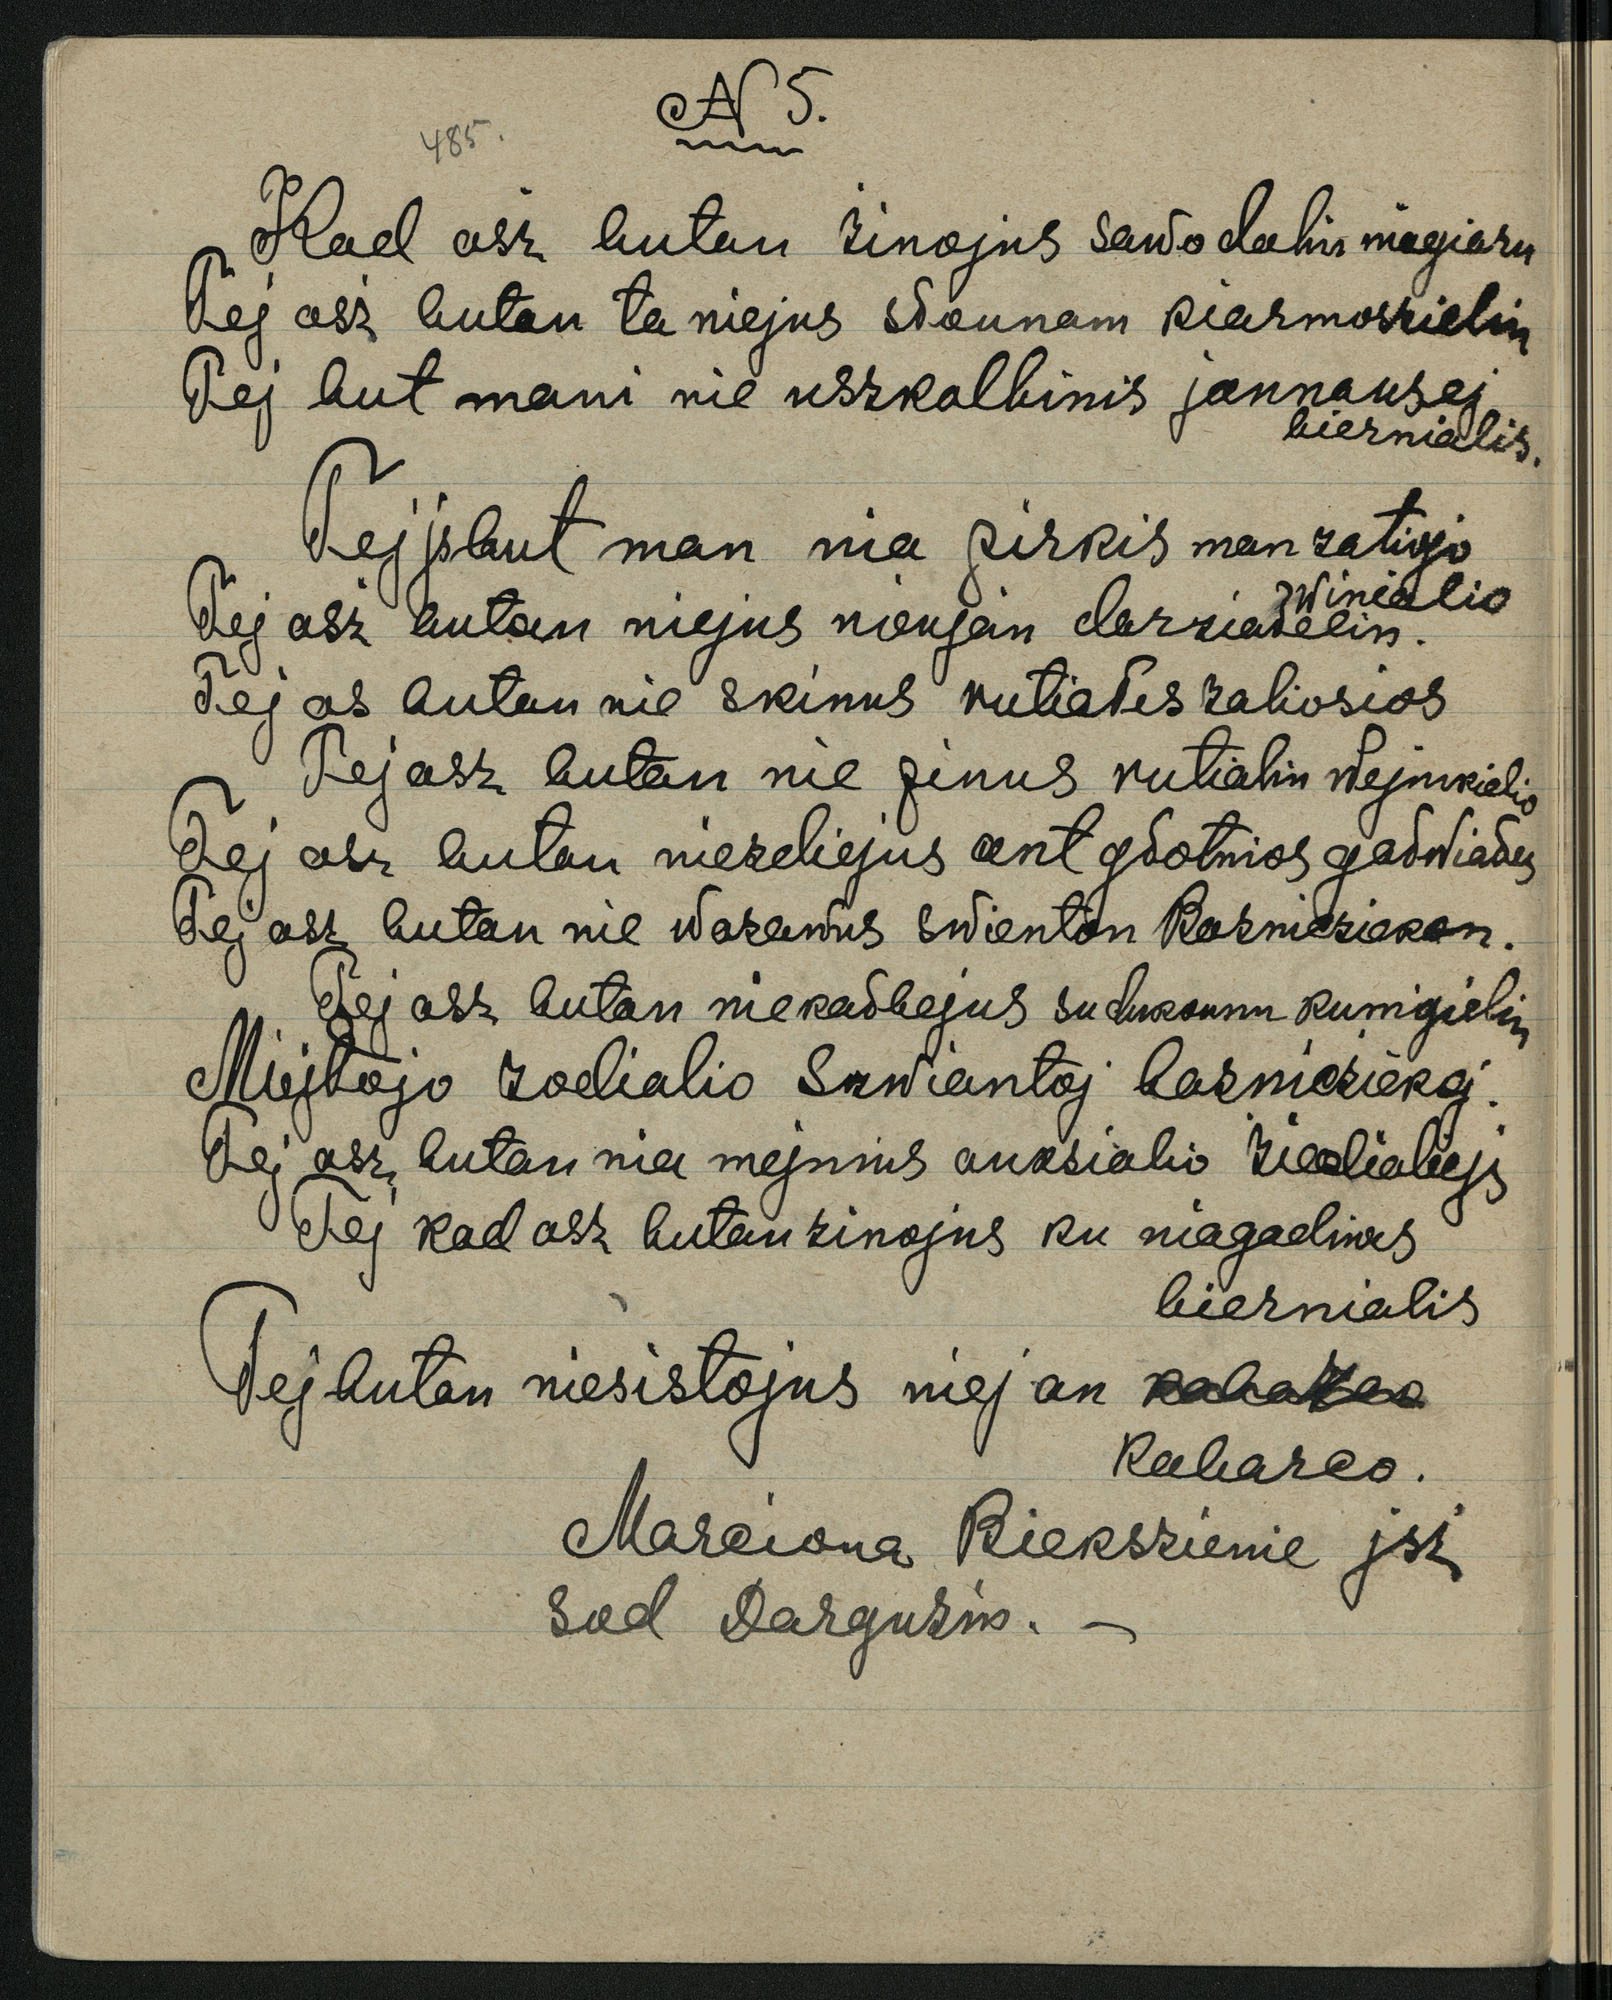 N 5.
485.
Kad asz butau żinojus sawo daliu niagiaru
Tej asż butau ta niejus słounam kiarmoszielin
Tej but mani nie uszkalbinis jaunausej
biernialis.
Tej jsbut man nia pirkis man zatiojo
zwinialio
Tej asż butau niejus naujan darziałelin.
Tej as butau nie skinus rutiałes zaliosios
Tej asz butau nie pinus rutialiu wejnikielio
Tej asz butau niezdiejus ant głotnios gałwiałes
Tej asz butau nie wazawus swienton Baznicziakon.
Tej asz butau niekałbejus su dukounu kunigielin
Miejłojo zodialio Szwiantoj baznicziekoj.
Tej asz butau nia mejnius auksialio żiedialiejs
Tej kad asz butau zinojus ku niagadnas
biernialis
Tej butau niesistojus niejan
kabarco.
Marciona Biekszienie jsż
sod Darguziu. –